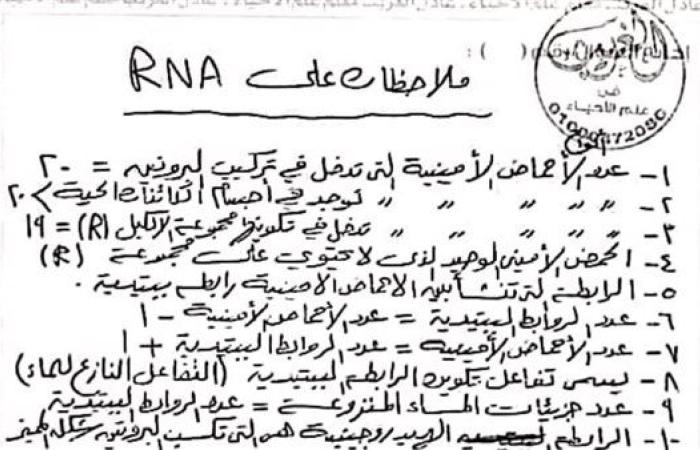 ملاحظات على RNA
الغريب
في
علم الأحياء
١- عدد الأحماض الأمينية التى تدخل في تركيب البروتين = ٢٠
٢- " " " " توجد في أجسام الكائنات الحية > ٢٠
٣- " " " " تدخل في تكوينها مجموعة الألكيل (R) = ١٩
٤- الحمض الأمينى الوحيد الذى لا يحتوي على مجموعة (R)
٥- الرابطة التى تنشأ بين الاحماض الامينية رابطة ببتيدية .
٦- عدد الروابط الببتيدية = عدد الأحماض الأمينية - ١
٧- عدد الأحماض الأمينية = عدد الروابط الببتيدية + ١
٨- يسمى تفاعل تكوين الرابطة الببتيدية (التفاعل النازع للماء)
٩- عدد جزيئات الماء المنزوعة = عدد الروابط الببتيدية
١٠- الرابطة الهيدروجينية هى التى تكسب البروتين شكله المميز